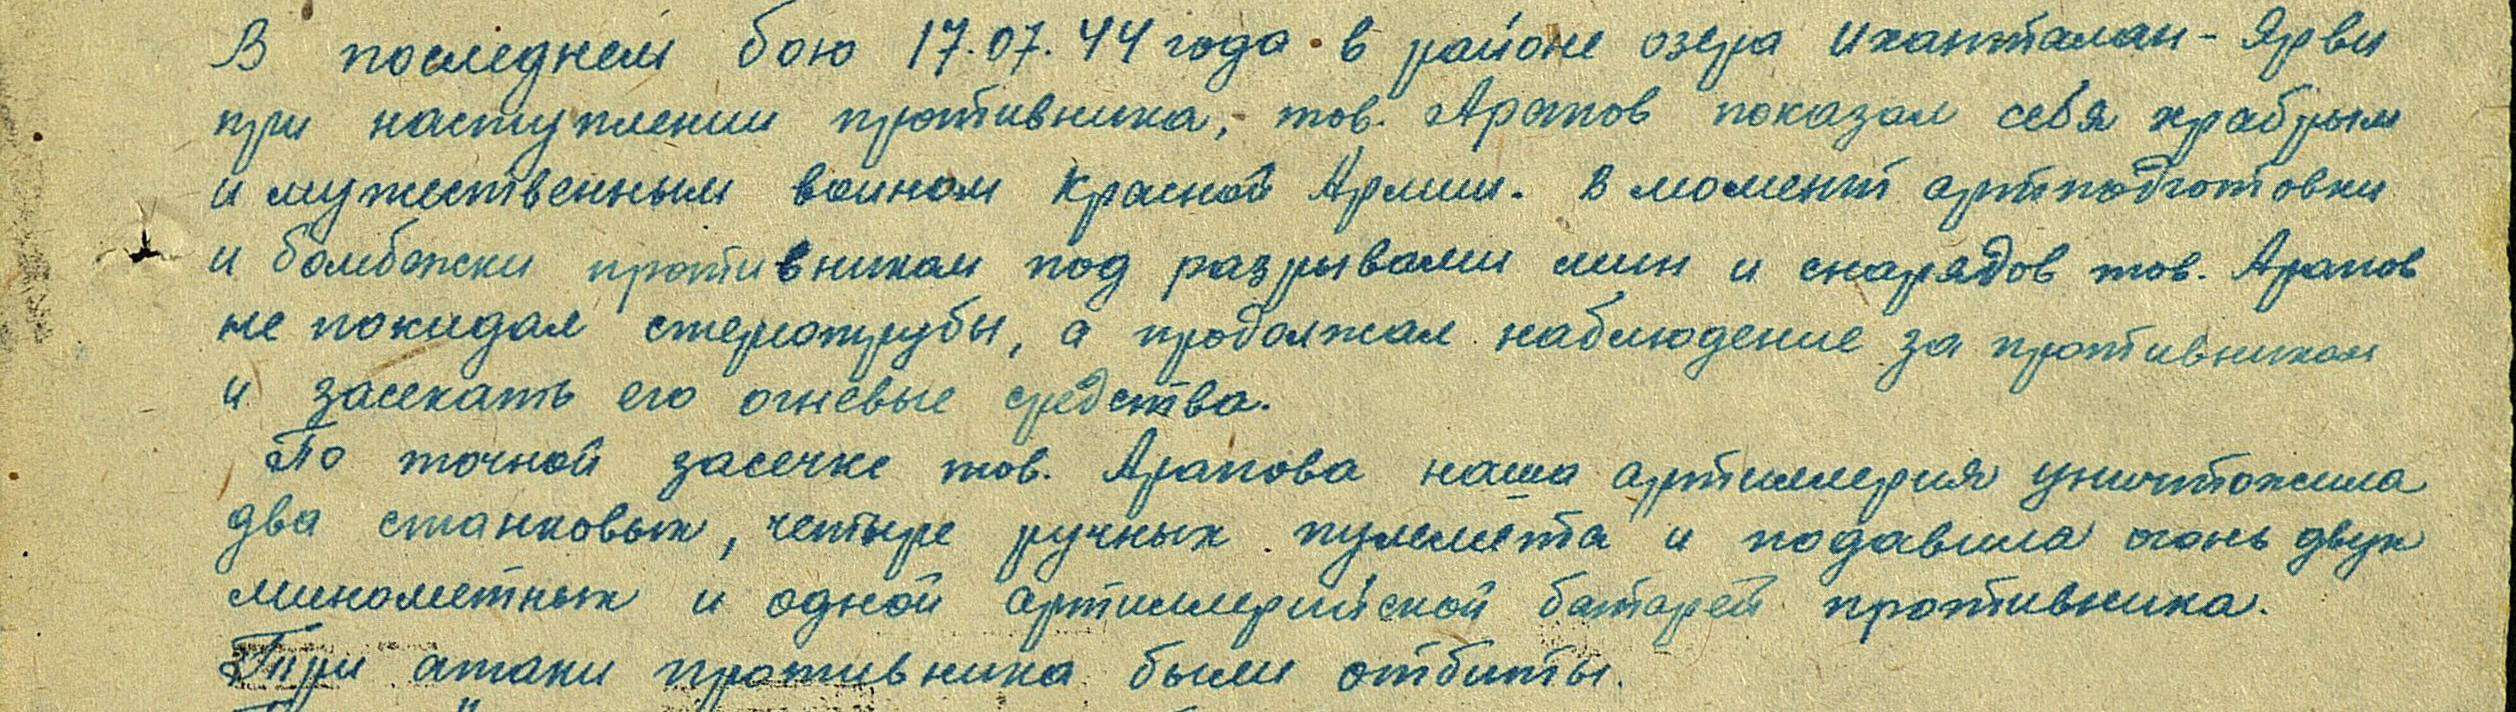 В последнем бою 17.07.44 года в районе озера Ихантталан-Ярви
при наступлении противника, тов. Арапов показал себя храбрым
и мужественным воином Красной Армии. В момент артподготовки
и бомбежки противником под разрывами мин и снарядов тов. Арапов
не покидал стереотрубы, а продолжал наблюдение за противником
и засекать его огневые средства.
По точной засечке тов. Арапова наша артиллерия уничтожила
два станковых, четыре ручных пулемета и подавила огонь двух
минометных и одной артиллерийской батарей противника.
Три атаки противника были отбиты.